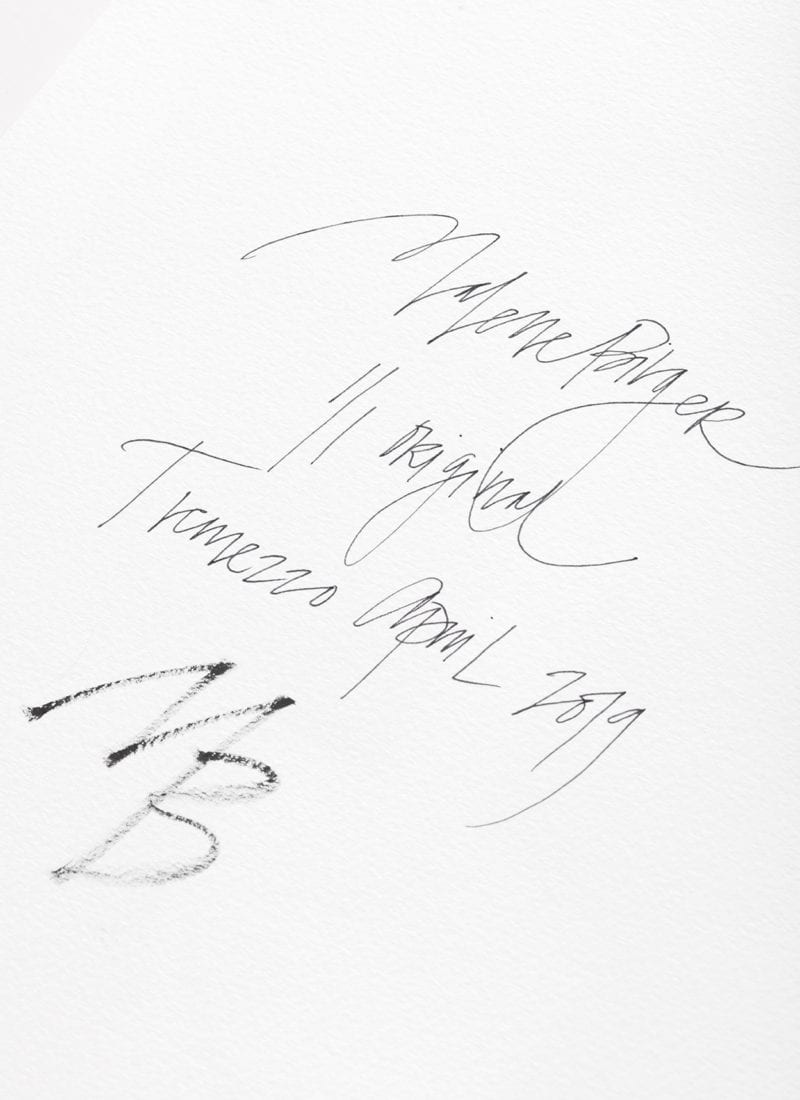 Malene Birger
1/1 original
Tremezzo April 2019
MB